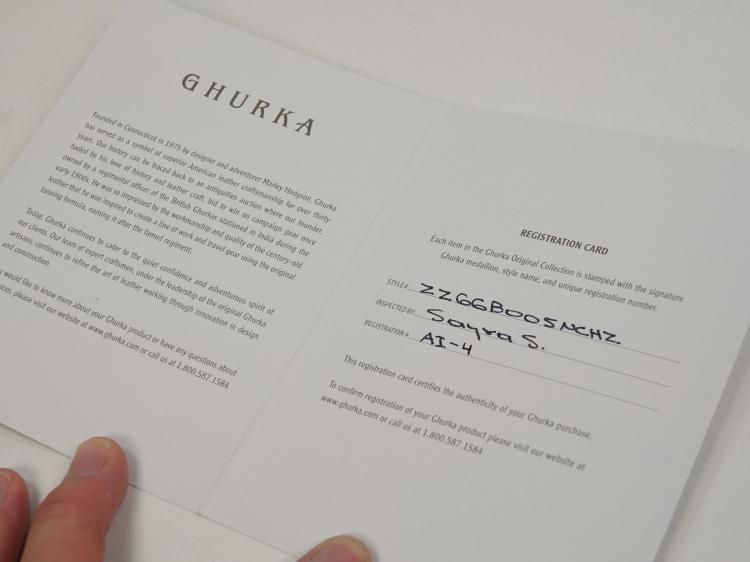 GHURKA
Founded in Connecticut in 1975 by designer and adventurer Marley Hodgson, Ghurka
has served as a symbol of superior American leather craftsmanship for over thirty
years. Our history can be traced back to an antiquities auction where our founder,
fueled by his love of history and leather craft, bid to win on campaign gear once
owned by a regimental officer of the British Ghurkas stationed in India during the
early 1900s. He was so impressed by the workmanship and quality of the century-old
leather that he was inspired to create a line of work and travel gear using the original
tanning formula, naming it after the famed regiment.
Today, Ghurka continues to cater to the quiet confidence and adventurous spirit of
our clients. Our team of expert craftsmen, under the leadership of the original Ghurka
artisans, continues to refine the art of leather working through innovation in design
and construction.
would like to know more about your Ghurka product or have any questions about
please visit our website at www.ghurka.com or call us at 1.800.587.1584
REGISTRATION CARD
Each item in the Ghurka Original Collection is stamped with the signature
Ghurka medallion, style name, and unique registration number.
STYLE# ZZGGB005NCHZ
INSPECTED BY Sayra S.
REGISTRATION# AI-4
This registration card certifies the authenticity of your Ghurka purchase.
To confirm registration of your Ghurka product please visit our website at
www.ghurka.com or call us at 1.800.587.1584